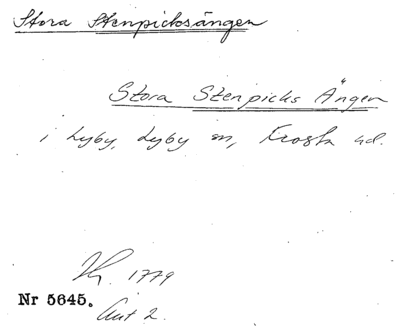 Stora Stenpicksängen
Stora Stenpicks Ängen
i Lyby, Lyby sn, Frosta hd.
1779
Nr 5645.
Akt 2.